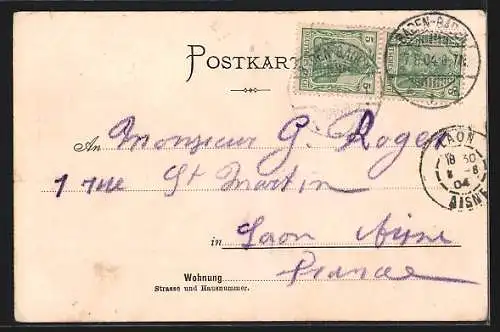 POSTKART
5 5
BADEN-BADEN
BADEN-BADEN
An Monsieur G. Roger
LAON
18 30
8 -8
04
AISNE
1 rue St Martin
in Laon Aisne
Wohnung France
Strasse und Hausnummer.